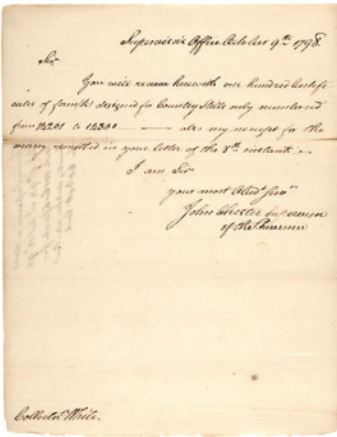 Supervisor's Office October 9th 1798.
Sir
You will receive herewith one hundred Certifi
cates of form designed for Country Stills only numbered
from 14201 to 14300 — also my receipt for the
money remitted in your letter of the 8th instant. —
I am Sir
your most Obedt Servt
John Chester Supervisor
of the Revenue
Collector White.